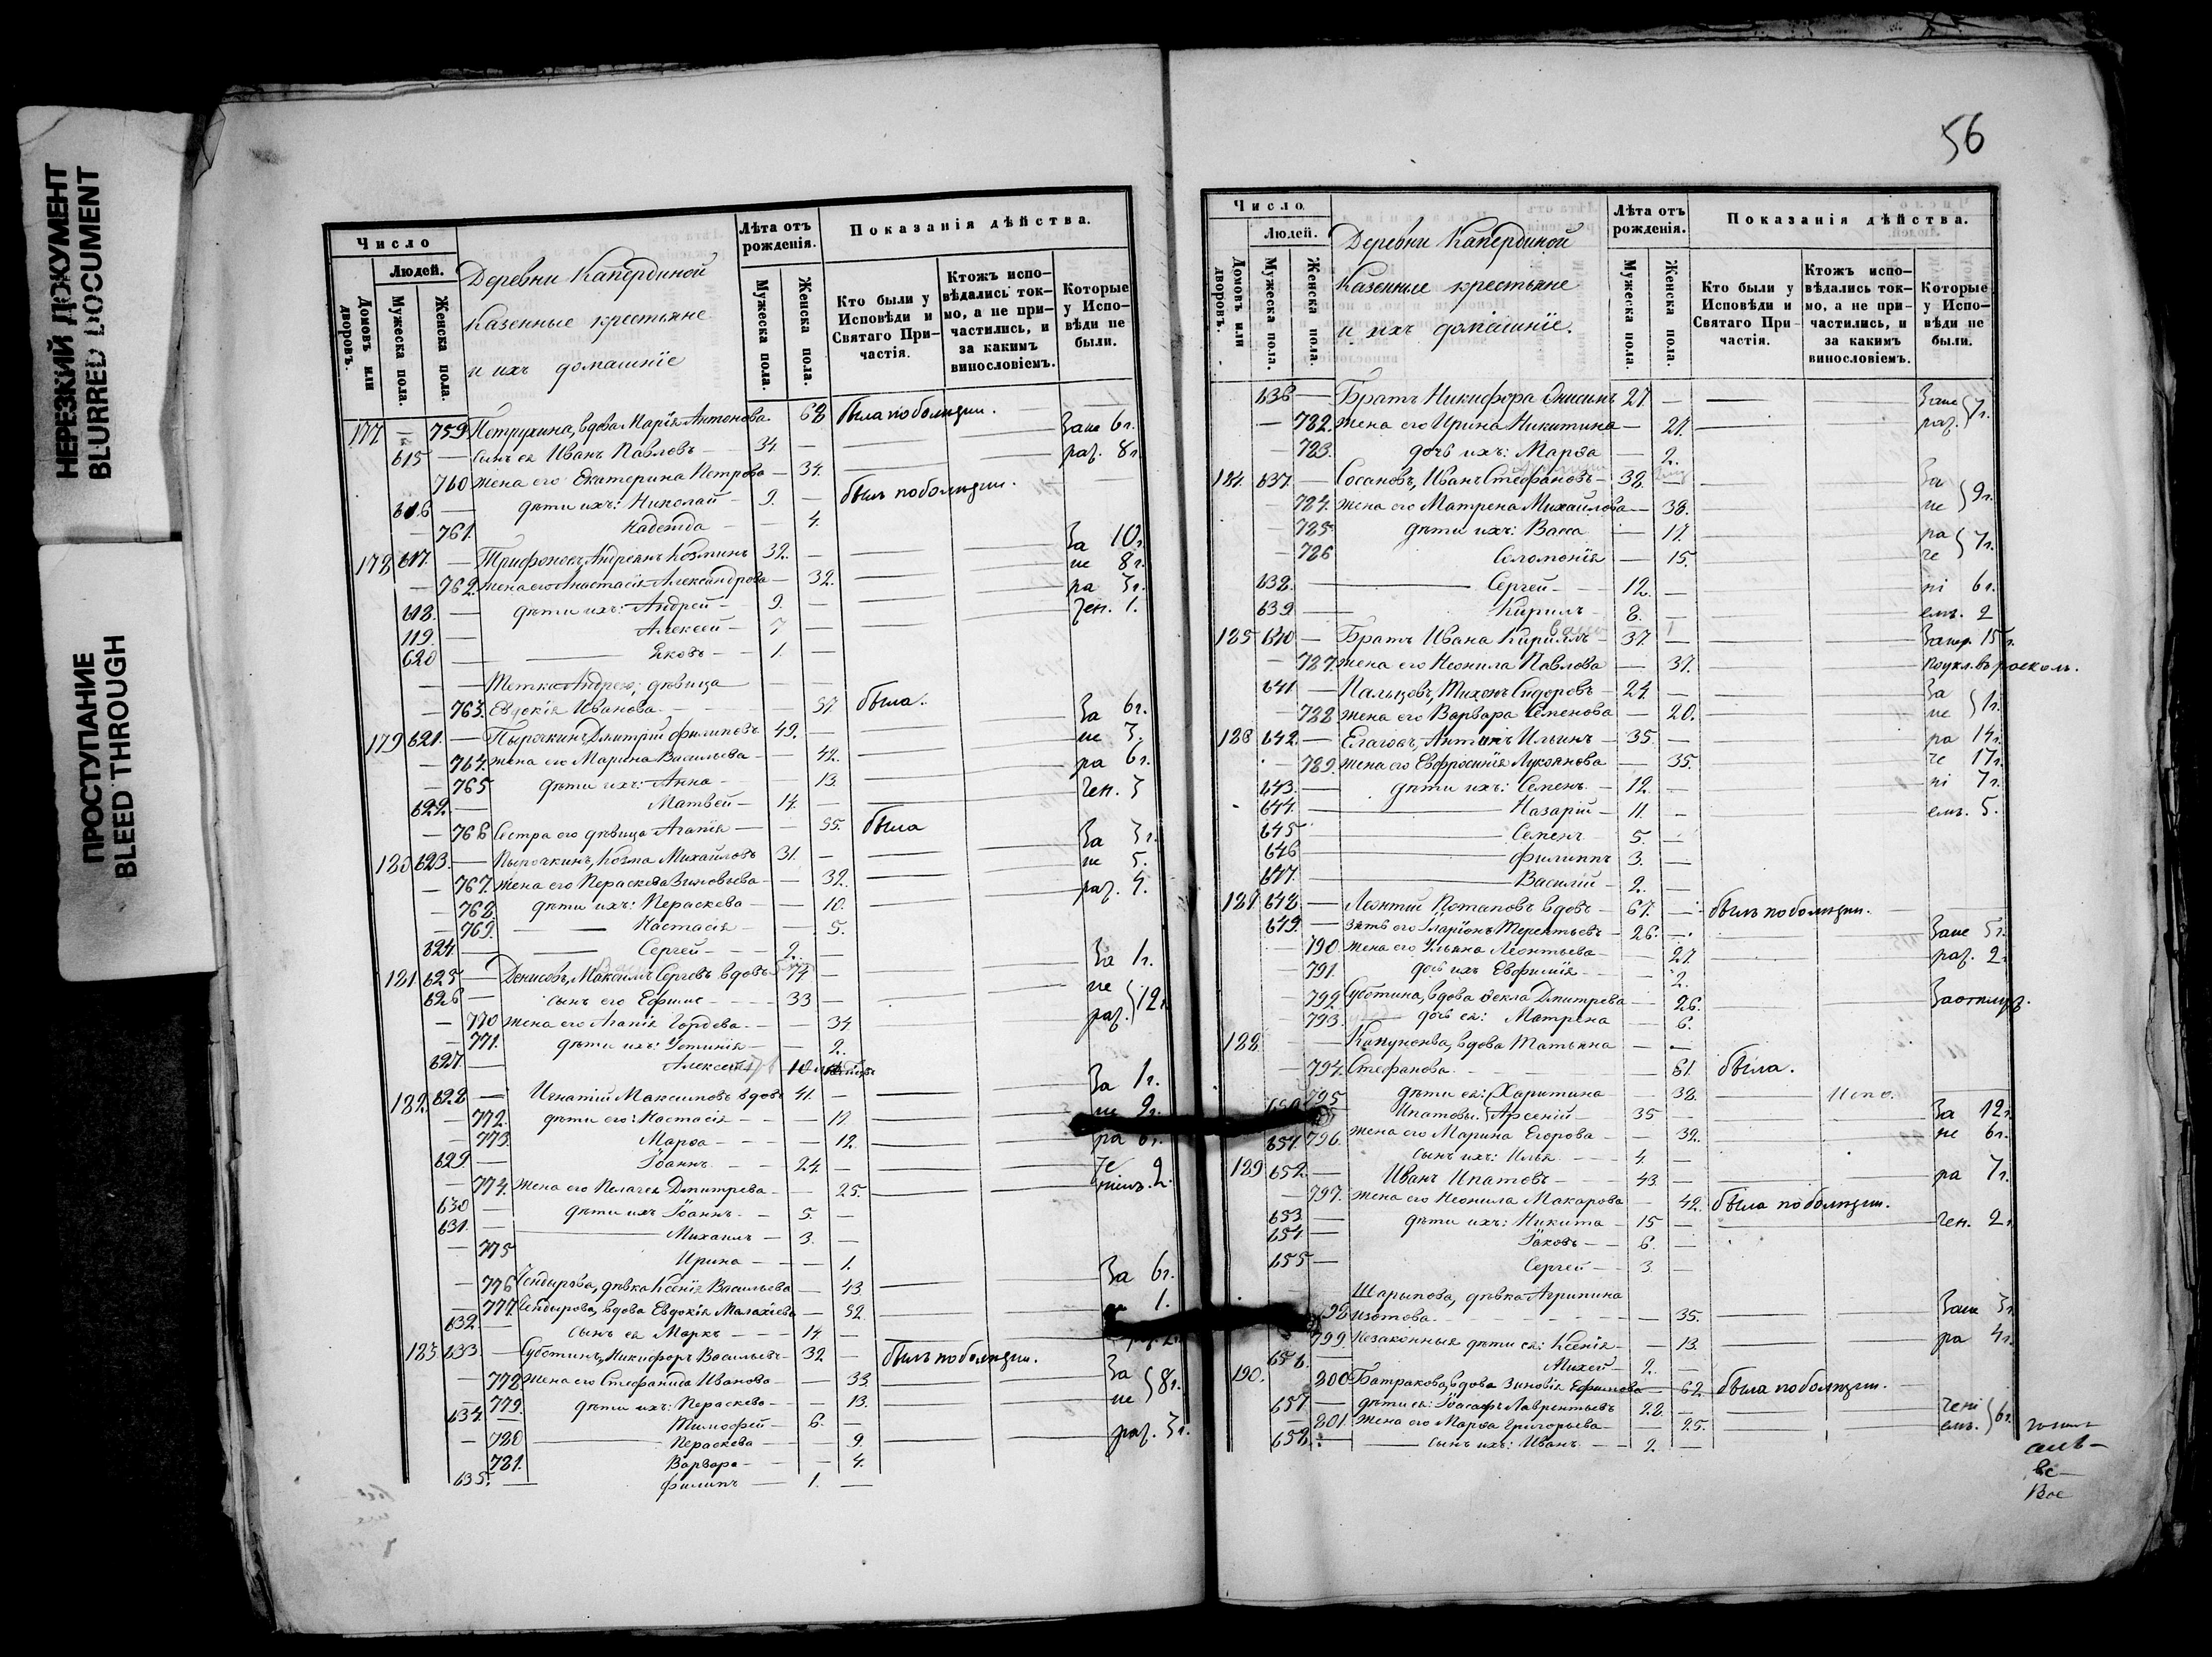 НЕРЕЗКИЙ ДОКУМЕНТ
BLURRED DOCUMENT
ПРОСТУПАНИЕ
BLEED THROUGH
Число
Людей.
Домовъ или дворовъ.
Мужеска пола.
Женска пола.
Деревни Капердиной
Казенные крестьяне
и ихъ домашніе
Лѣта отъ рожденія.
Мужеска пола.
Женска пола.
Показанія дѣйства.
Кто были у Исповѣди и Святаго Причастія.
Ктожъ исповѣдались токмо, а не причастились, и за какимъ винословіемъ.
Которые у Исповѣди не были.
177 — 759 Петрухина, вдова Марія Антонова 68 была по болѣзни.
615 — Сынъ ея Иванъ Павловъ — 34 — За не 6 г.
760 жена его Екатерина Петрова — 34. раз. 8 г.
616 — дѣти ихъ: Николай — 9. — былъ по болѣзни.
— 761. Надежда — — 4.
178 617. — Трифоновъ, Андреянъ Козминъ 32. — За 10 г.
— 762. жена его Анастасія Александрова — 32. не 8 г.
618. — дѣти ихъ: Андрей — 9. — ра 3 г.
119. — Алексѣй — 7 — чен. 1.
620 — Яковъ — 1. —
— — Тетка Андрея, дѣвица
— 763. Евдокія Иванова — 57 была.
179 621. — Дмитрій Филиповъ 49. — За 6 г.
— 764. жена его Марина Васильева — 42. не 3.
— 765 дѣти ихъ: Анна — 13. ра 6 г.
622. — Матвей — 14. — чен. 3
— 766 Сестра его дѣвица Агапія — — 55. была
180 623. — Козма Михайловъ 31. — За 3 г.
— 767. жена его Пераскева Зиновьева — 32. не 5.
— 768. дѣти ихъ: Пераскева — 10. раз. 4.
— 769. Настасія — 5.
624. — Сергей — 2. —
181 625 — Денисовъ, Максимъ Сергѣевъ вдовъ 74 — За 1 г.
626 — сынъ его Ефимъ — 33 — не
— 770 жена его Агапія Гордѣева — 34. раз. 12 г.
— 771. дѣти ихъ: Устинія — 2.
627. — Алексѣй 10
182. 628 — Игнатій Максимовъ вдовъ 41. — За 1 г.
— 772. дѣти его: Настасія — 17. не 9 г.
— 773. Марѳа — 12. ра 6 г.
629. — Іоаннъ — 24. — че
— 774. жена его Пелагея Дмитрева — 25. ніемъ. 2.
630 — дѣти ихъ Іоаннъ — 5. —
631. — Михаилъ — 3. —
— 775 Ирина — 1.
— 776 дѣвка Ксенія Васильева — 43 За 6 г.
— 777. вдова Евдокія Малахіева — 52. не 1.
632. — сынъ ея Маркъ — 14 —
183. 633. — Суботинъ, Никифоръ Васильевъ 32 — былъ по болѣзни.
— 778 жена его Стефанида Иванова — 33. За
— 779. дѣти ихъ: Пераскева — 13. не 8 г.
634. — Тимофей — 6. —
— 780 Пераскева — 9. раз. 3 г.
— 781. Варвара — 4.
635. — Филипъ — 1. —
56
Число
Людей.
Домовъ или дворовъ.
Мужеска пола.
Женска пола.
Деревни Капердиной
Казенные крестьяне
и ихъ домашніе.
Лѣта отъ рожденія.
Мужеска пола.
Женска пола.
Показанія дѣйства.
Кто были у Исповѣди и Святаго Причастія.
Ктожъ исповѣдались токмо, а не причастились, и за какимъ винословіемъ.
Которые у Исповѣди не были.
636 — Братъ Никифора Анисимъ 27. — За не
— 782. жена его Ирина Никитина — 27. раз. 7 г.
— 783. дочь ихъ: Марѳа — 2.
184. 637. — Иванъ Стефановъ — 38. — За
— 784. жена его Матрена Михайлова — 38. не 9 г.
— 785 дѣти ихъ: Васса — 17. ра
— 786 Соломонія — 15. че 7 г.
638. — Сергей — 12. — ні 6 г.
639 — Кирилъ 8. — емъ. 2
185 640 — Братъ Ивана Кириллъ — 37. — За нер. 15 г.
— 787. жена его Неонила Павлова — 37. по укл. въ расколъ.
641 — Пальцовъ, Тихонъ Сидоровъ — 24. — За
— 788. жена его Варвара Семенова — 20. не 1 г.
186 642. — Елаговъ, Антипъ Ильинъ — 35 — ра 14 г.
— 789. жена его Евфросинія Лукоянова — 35. че 17 г.
643. — дѣти ихъ: Семенъ — 12. — ні 7 г.
644. — Назарій — 11. — емъ. 5.
645 — Семенъ 5. —
646 — Филиппъ 3. —
647. — Василій — 2. —
187 648 — Леонтій Потаповъ вдовъ — 67. — былъ по болѣзни.
649. — зять его Иларіонъ Терентьевъ — 26. — За не 5 г.
— 790. жена его Ульяна Леонтьева — 27. раз. 2.
— 791. дочь ихъ Евфимія — 2.
— 792. Суботина, вдова Ѳекла Дмитрева — 26. За отлуч.
— 793. дочь ея: Матрена — 6.
188 вдова Татьяна — —
— 794. Стефанова — 61. была.
795 дѣти ея: Харитина — 38. Испо.
Ипатовы: Арсеній — 35 — За 12 г.
651. 796. жена его Марина Егорова — 32. не 6 г.
сынъ ихъ: Илья — 4. —
189 652. — Иванъ Ипатовъ — 43 — ра 7 г.
— 797. жена его Неонила Макарова — 42. была по болѣзни.
653 — дѣти ихъ: Никита — 15 — чен. 2 г.
654 — Іаковъ — 6. —
655 — Сергей — 3 —
Шарыпова, дѣвка Агрипина
798 Изотова — 35. За не 3 г.
799. Незаконныя дѣти ея: Ксенія — 13. ра 4 г.
656. — Михей — 2. —
190. 800 Батракова, вдова Зиновія Ефимова — 62. была по болѣзни.
657 — дѣти ея: Іоасафъ Лаврентьевъ 28. — чені
— 801. жена его Марѳа Григорьева — 25. емъ. 6 г.
658. — сынъ ихъ: Иванъ — 2. —